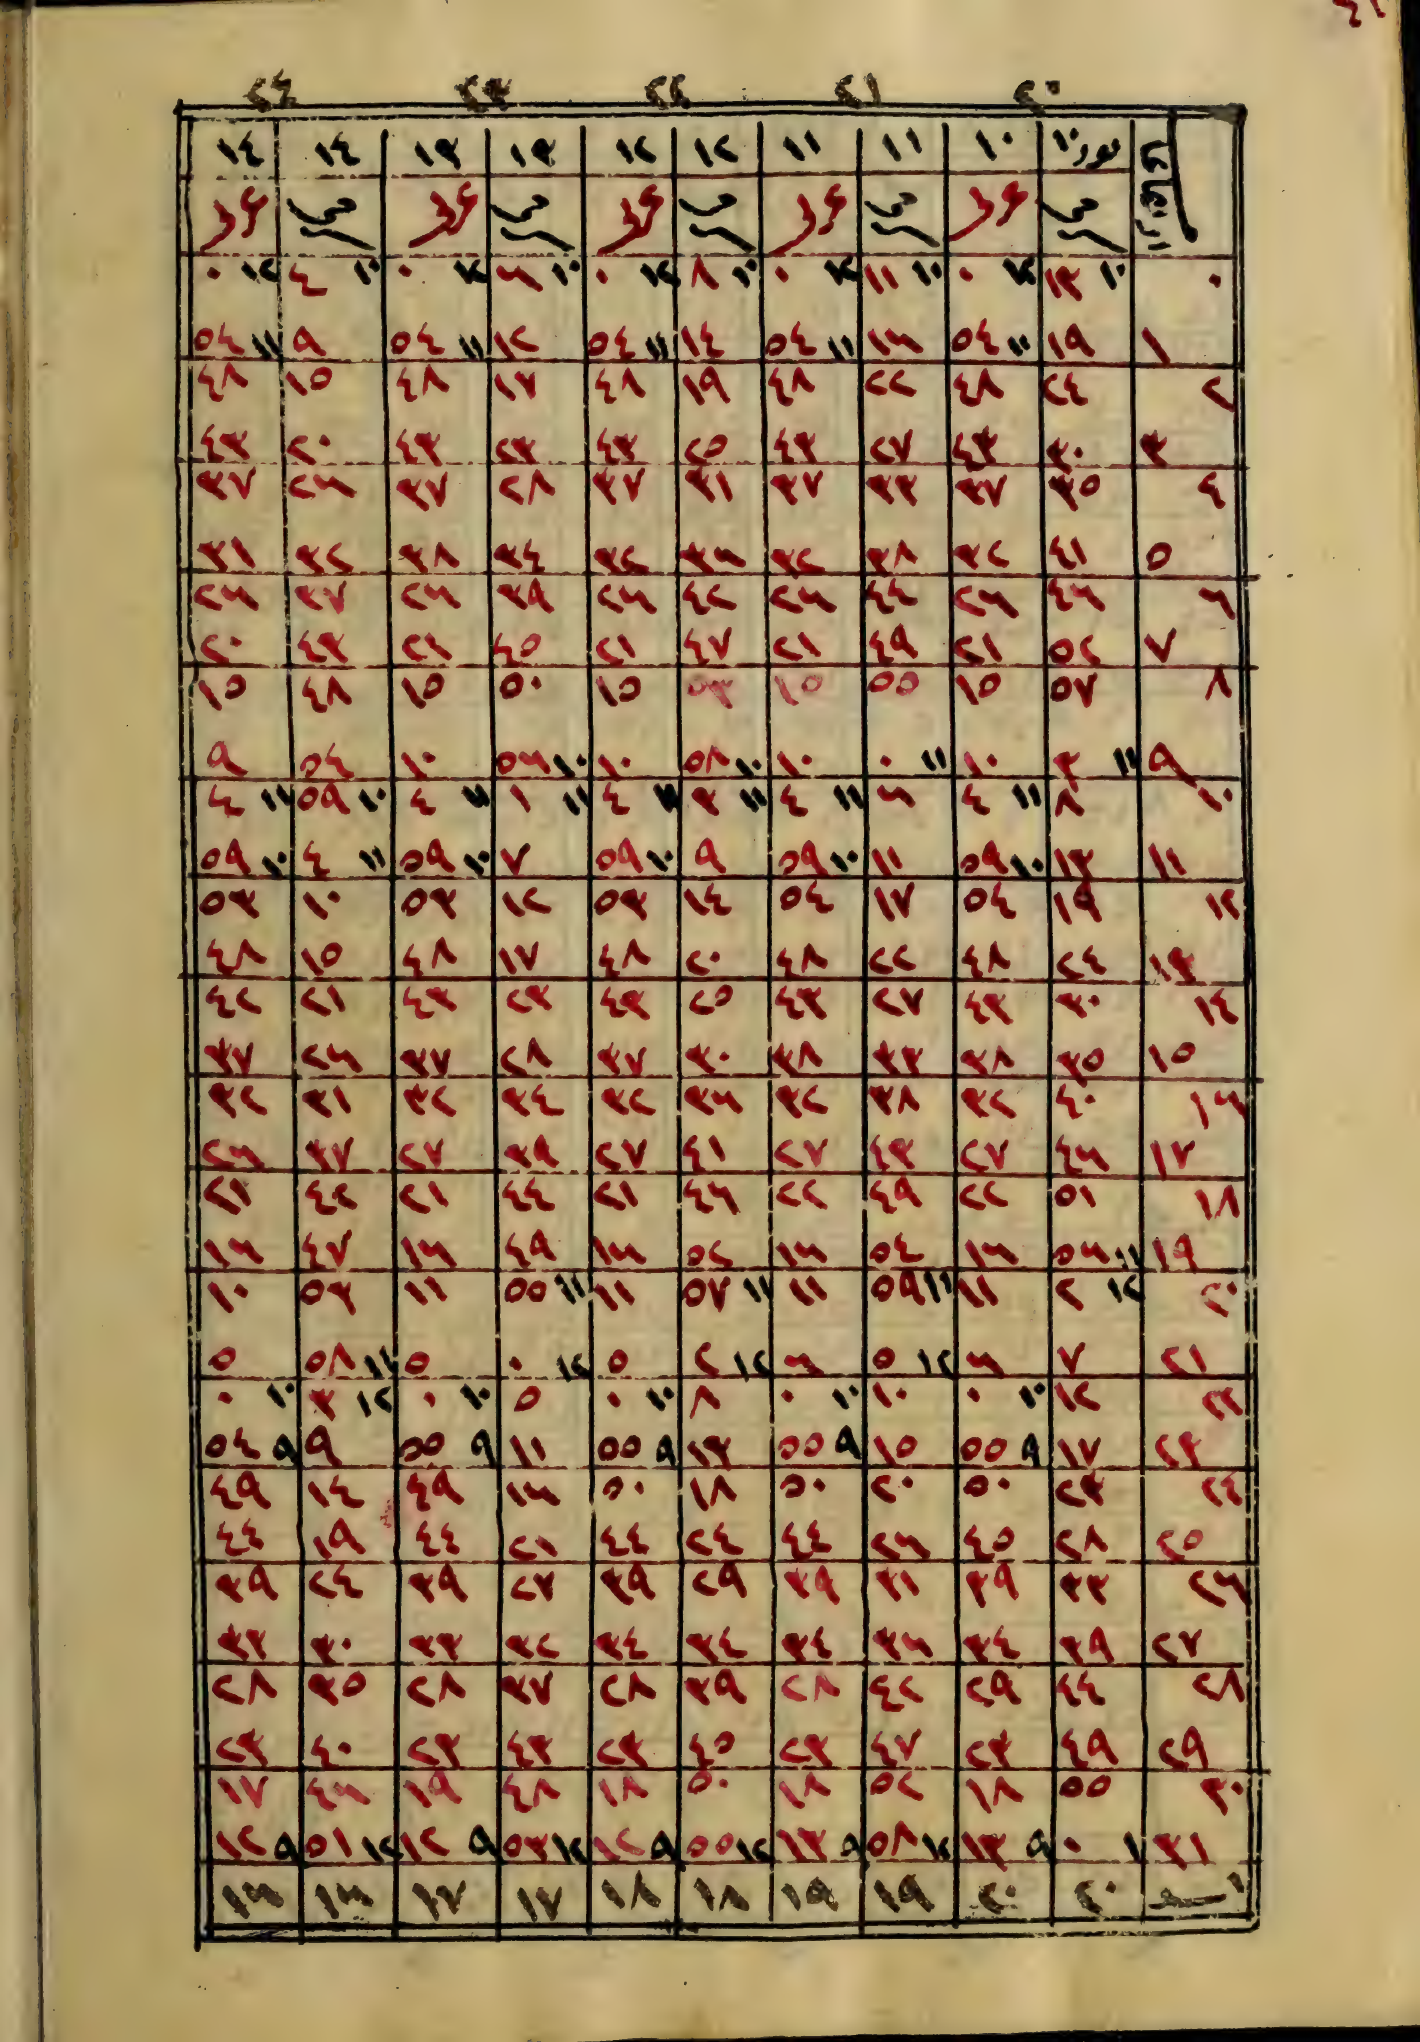 ٢٠ ٢١ ٢٢ ٢٣ ٢٤
ثور ١٠ ١٠ ١١ ١١ ١٢ ١٢ ١٣ ١٣ ١٤ ١٤
٠ ١٠ ١٣ ١٢ ٠ ١٠ ١١ ١٢ ٠ ١٠ ٨ ١٢ ٠ ١٠ ٦ ١٢ ٠ ١٠ ٤ ١٢ ٠
١ ١٩ ١١ ٥٤ ١٦ ١١ ٥٤ ١٤ ١١ ٥٤ ١٢ ١١ ٥٤ ٩ ١١ ٥٤
٢ ٢٤ ٤٨ ٢٢ ٤٨ ١٩ ٤٨ ١٧ ٤٨ ١٥ ٤٨
٣ ٣٠ ٤٣ ٢٧ ٤٣ ٢٥ ٤٣ ٢٣ ٤٣ ٢٠ ٤٣
٤ ٣٥ ٣٧ ٣٣ ٣٧ ٣١ ٣٧ ٢٨ ٣٧ ٢٦ ٣٧
٥ ٤١ ٣٢ ٣٨ ٣٢ ٣٦ ٣٢ ٣٤ ٣٨ ٣٢ ٣١
٦ ٤٦ ٢٦ ٤٤ ٢٦ ٤٢ ٢٦ ٣٩ ٢٦ ٣٧ ٢٦
٧ ٥٢ ٢١ ٤٩ ٢١ ٤٧ ٢١ ٤٥ ٢١ ٤٣ ٢٠
٨ ٥٧ ١٥ ٥٥ ١٥ ٥٣ ١٥ ٥٠ ١٥ ٤٨ ١٥
٩ ١١ ٣ ١٠ ١١ ٠ ١٠ ١٠ ٥٨ ١٠ ١٠ ٥٦ ١٠ ٥٤ ٩
١٠ ٨ ١١ ٤ ٦ ١١ ٤ ١١ ٣ ١١ ٤ ١١ ١ ١١ ٤ ١٠ ٥٩ ١١ ٤
١١ ١٣ ١٠ ٥٩ ١١ ١٠ ٥٩ ٩ ١٠ ٥٩ ٧ ١٠ ٥٩ ١١ ٤ ١٠ ٥٩
١٢ ١٩ ٥٤ ١٧ ٥٤ ١٤ ٥٣ ١٢ ٥٣ ١٠ ٥٣
١٣ ٢٤ ٤٨ ٢٢ ٤٨ ٢٠ ٤٨ ١٧ ٤٨ ١٥ ٤٨
١٤ ٣٠ ٤٣ ٢٧ ٤٣ ٢٥ ٤٣ ٢٣ ٤٣ ٢١ ٤٢
١٥ ٣٥ ٣٨ ٣٣ ٣٨ ٣٠ ٣٧ ٢٨ ٣٧ ٢٦ ٣٧
١٦ ٤٠ ٣٢ ٣٨ ٣٢ ٣٦ ٣٢ ٣٤ ٣٢ ٣١ ٣٢
١٧ ٤٦ ٢٧ ٤٣ ٢٧ ٤١ ٢٧ ٣٩ ٢٧ ٣٧ ٢٦
١٨ ٥١ ٢٢ ٤٩ ٢٢ ٤٦ ٢١ ٤٤ ٢١ ٤٢ ٢١
١٩ ١١ ٥٦ ١٦ ٥٤ ١٦ ٥٢ ١٦ ٤٩ ١٦ ٤٧ ١٦
٢٠ ١٢ ٢ ١١ ١١ ٥٩ ١١ ١١ ٥٧ ١١ ١١ ٥٥ ١١ ٥٣ ١٠
٢١ ٧ ٦ ١٢ ٥ ٦ ١٢ ٢ ٥ ١٢ ٠ ٥ ١١ ٥٨ ٥
٢٢ ١٢ ١٠ ٠ ١٠ ١٠ ٠ ٨ ١٠ ٠ ٥ ١٠ ٠ ١٢ ٣ ١٠ ٠
٢٣ ١٧ ٩ ٥٥ ١٥ ٩ ٥٥ ١٣ ٩ ٥٥ ١١ ٩ ٥٥ ٩ ٩ ٥٤
٢٤ ٢٣ ٥٠ ٢٠ ٥٠ ١٨ ٥٠ ١٦ ٤٩ ١٤ ٤٩
٢٥ ٢٨ ٤٥ ٢٦ ٤٤ ٢٤ ٤٤ ٢١ ٤٤ ١٩ ٤٤
٢٦ ٣٣ ٣٩ ٣١ ٣٩ ٢٩ ٣٩ ٢٧ ٣٩ ٢٤ ٣٩
٢٧ ٣٩ ٣٤ ٣٦ ٣٤ ٣٤ ٣٤ ٣٢ ٣٣ ٣٠ ٣٣
٢٨ ٤٤ ٢٩ ٤٢ ٢٨ ٣٩ ٢٨ ٣٧ ٢٨ ٣٥ ٢٨
٢٩ ٤٩ ٢٣ ٤٧ ٢٣ ٤٥ ٢٣ ٤٣ ٢٣ ٤٠ ٢٣
٣٠ ٥٥ ١٨ ٥٢ ١٨ ٥٠ ١٨ ٤٨ ١٩ ٤٦ ١٧
٣١ ١ ٠ ٩ ١٣ ١٢ ٥٨ ٩ ١٣ ١٢ ٥٥ ٩ ١٢ ١٢ ٥٣ ٩ ١٢ ١٢ ٥١ ٩ ١٢
٢٠ ٢٠ ١٩ ١٩ ١٨ ١٨ ١٧ ١٧ ١٦ ١٦